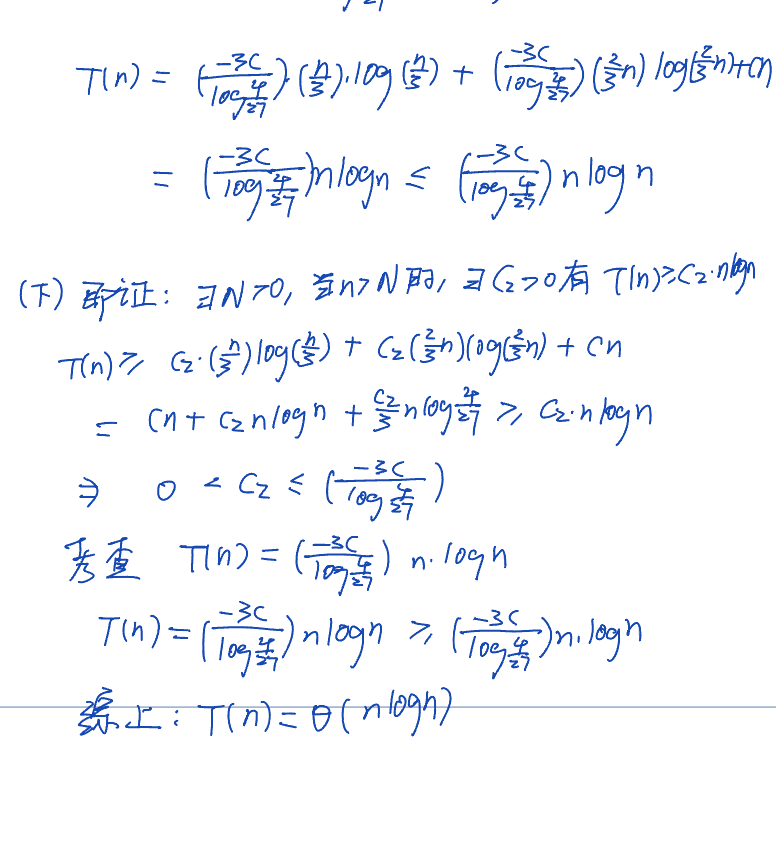 T(n) = (-3C/log 4/27)·(n/3)·log(n/3) + (-3C/log 4/27)(2/3 n) log(2/3 n)+cn
= (-3C/log 4/27) n log n ≤ (-3C/log 4/27) n log n
(下) 即证: ∃N>0, 当n>N时, ∃C₂>0有 T(n)≥C₂·nlogn
T(n)≥ C₂·(n/3)log(n/3) + C₂(2/3 n)log(2/3 n) + Cn
= Cn + C₂ n log n + C₂/3 n log 4/27 ≥ C₂·n logn
⇒ 0 < C₂ ≤ (-3C/log 4/27)
考查 T(n) = (-3C/log 4/27) n·logn
T(n) = (-3C/log 4/27) n logn ≥ (-3C/log 4/27) n·logn
综上: T(n) = θ(n logn)